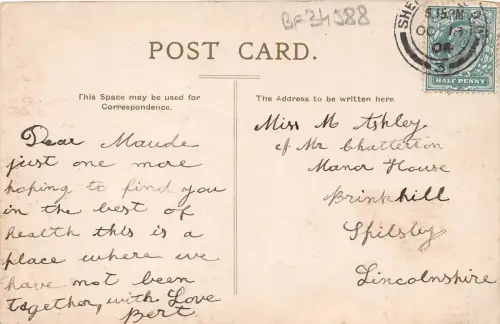 BF 24988
POST CARD.
This Space may be used for
Correspondence.
The Address to be written here
8.15 PM
OC
04
3
HALF PENNY
Dear Maude
just one more
hoping to find you
in the best of
health this is a
place where we
have not been
together, with Love
Bert
Miss M Ashley
c/f Mr Chatterton
Manor House
Brinkhill
Spilsby
Lincolnshire